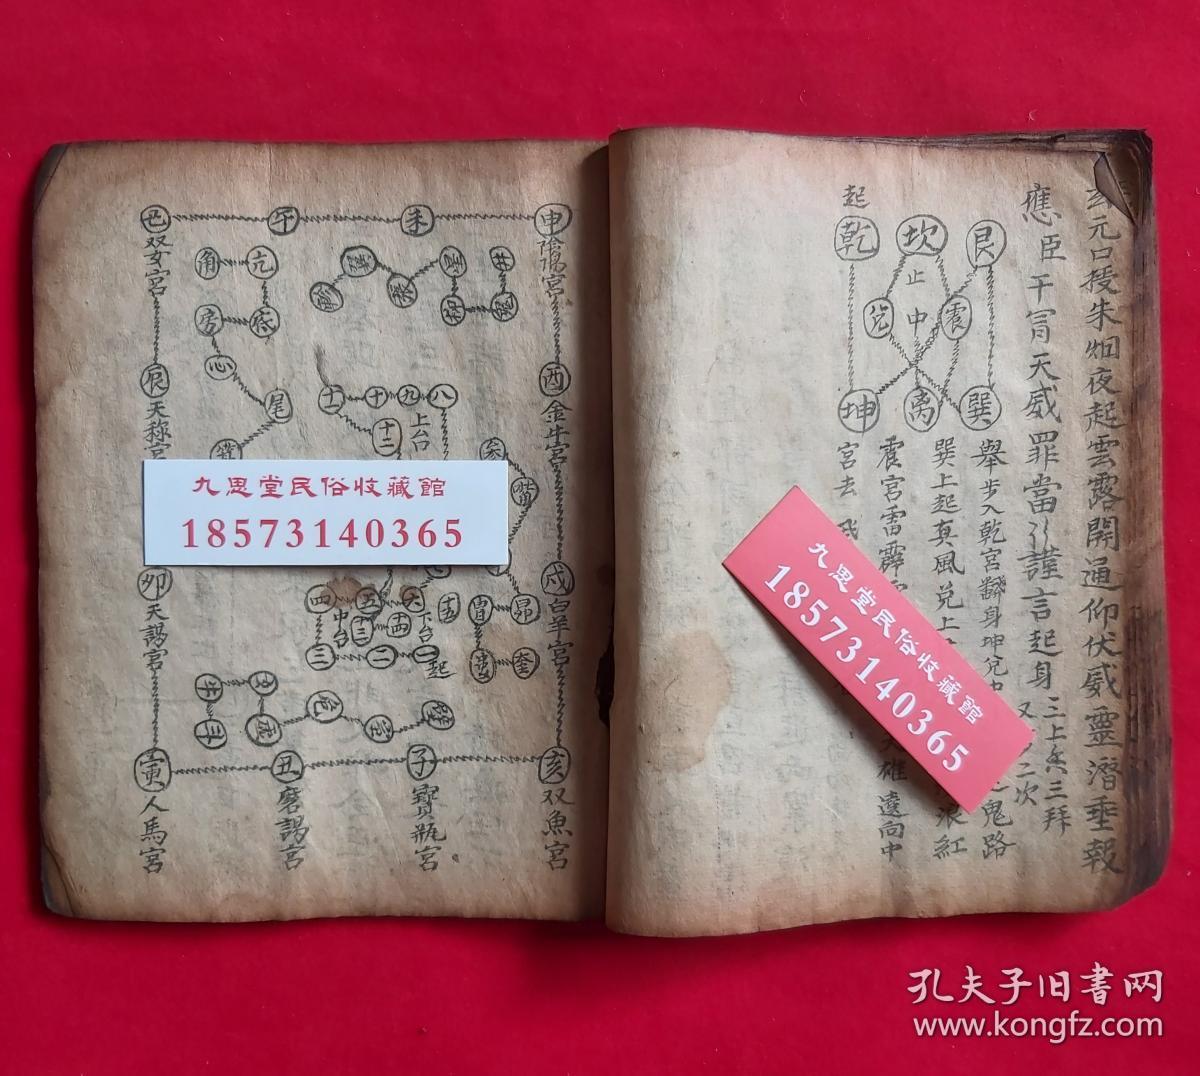 玄元口授朱烟夜起雲露開通仰伏威靈潛垂報
應臣干冒天威罪當
謹言起身三上香三拜
艮
坎
起乾
止中
震
兌
巽
離
坤
舉步入乾宮翻身坤兌中
又
二次
鬼路
巽上起真風兌上
浪紅
震宮雷霹
天雄遠向中
宮去
申陰陽宮
未
午
巳双女宮
井
角
亢
氐
房
心
尾
箕
酉金牛宮
辰天秤宮
八
九
十
十一
十二
上台
参
觜
戌白羊宮
卯天蝎宮
四
五
六
中台
下台
十三
十四
三
二
一起
胃
昴
婁
奎
牛
女
斗
虛
危
室
壁
亥双魚宮
子寶瓶宮
丑磨蝎宮
寅人馬宮
九思堂民俗收藏館
18573140365
九思堂民俗收藏館
18573140365
孔夫子旧书网
www.kongfz.com